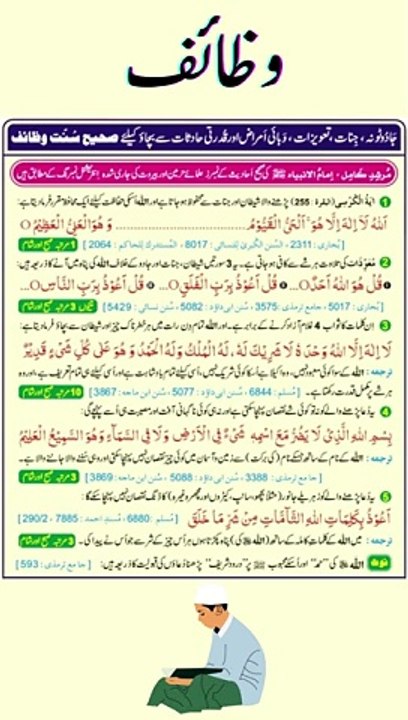 وظائف
جادو ٹونہ، جنات، تعویزات، وبائی امراض اور قدرتی حادثات سے بچاؤ کیلئے صحیح سُنّت وظائف
مُرشدِ کامل - امامُ الانبیاء ﷺ کی صحیح احادیث کے نمبرز علمائے حرمین اور بیروت کی جاری شدہ انٹرنیشنل نمبرنگ کے مطابق ہیں
1 آیۃُ الکُرسِی (البقرۃ : 255) پڑھنے والا شیطان اور جنات سے محفوظ ہو جاتا ہے اور اللہ اُسکی حفاظت کیلئے ایک محافظ مقرر فرما دیتا ہے:
اَللّٰهُ لَآ اِلٰهَ اِلَّا هُوَ ۚ اَلْحَیُّ الْقَیُّوْمُ ........................ وَهُوَ الْعَلِیُّ الْعَظِیْمُ O
[ بُخاری : 2311 ، السُنن الکُبریٰ لِلنسائی : 8017 ، المُستدرک لِلحاکم : 2064 ] 1 مرتبہ صبح اور شام
2 مُعَوّذات کی تلاوت ہر شے سے کافی ہو جاتی ہے۔ یہ 3 سورتیں شیطان، جنات اور جادو کے خلاف اللہ کی پناہ میں آنے کا ذریعہ ہیں:
قُلْ هُوَ اللّٰهُ اَحَدٌ O... قُلْ اَعُوْذُ بِرَبِّ الْفَلَقِ O... قُلْ اَعُوْذُ بِرَبِّ النَّاسِ O...
[ بُخاری : 5017 ، جامع ترمذی : 3575 ، سُنن ابی داؤد : 5082 ، سُنن نسائی : 5429 ] تینوں 3 مرتبہ صبح اور شام
3 اِن کلمات کا ثواب 4 غلام آزاد کرنے کے برابر ہے۔ اور اللہ تمام دِن رات میں ہر خطرناک چیز اور شیطان سے بچاؤ فرما دیتا ہے:
لَا اِلٰهَ اِلَّا اللّٰهُ وَحْدَهٗ لَا شَرِیْكَ لَهٗ، لَهُ الْمُلْكُ وَلَهُ الْحَمْدُ وَهُوَ عَلٰی كُلِّ شَیْءٍ قَدِیْرٌ
ترجمہ : اللہ کے سوا کوئی معبود نہیں، وہ اکیلا ہے اسکا کوئی شریک نہیں، اُسی کیلئے تمام بادشاہت ہے اور اُسی کیلئے تمام تعریف ہے اور وہ
ہر شے پر مکمل قدرت رکھتا ہے۔ [ مُسلم : 6844 ، سُنن ابی داؤد : 5077 ، سُنن ابن ماجہ : 3867 ] 10 مرتبہ صبح اور شام
4 یہ دُعا پڑھنے والے کو نہ تو کوئی شے نقصان پہنچا سکتی ہے اور نہ ہی کوئی ناگہانی آفت اور مصیبت ہی اُسے پہنچے گی:
بِسْمِ اللّٰهِ الَّذِیْ لَا یَضُرُّ مَعَ اسْمِهٖ شَیْءٌ فِی الْاَرْضِ وَلَا فِی السَّمَآءِ وَهُوَ السَّمِیْعُ الْعَلِیْمُ
ترجمہ : اللہ کے نام کے ساتھ جسکے نام (کی برکت) سے زمین اور آسمان میں کوئی چیز نقصان نہیں پہنچا سکتی اور وہی سننے والا جاننے والا ہے۔
[ جامع ترمذی : 3388 ، سُنن ابی داؤد : 5088 ، سُنن ابن ماجہ : 3869 ] 3 مرتبہ صبح اور شام
5 یہ دُعا پڑھنے والے کو زہریلے جانور (مثلاً بچھو، سانپ، کیڑوں اور مچھر وغیرہ) کا ڈنگ نقصان نہیں پہنچا سکے گا:
اَعُوْذُ بِكَلِمَاتِ اللّٰهِ التَّآمَّاتِ مِنْ شَرِّ مَا خَلَقَ [ مُسلم : 6880 ، مُسند احمد : 7885 ، 290/2 ]
ترجمہ : میں اللہ کے کلماتِ کاملہ کے ساتھ (اللہ کی) پناہ پکڑتا ہوں ہر اُس چیز کے شر سے جو اُس نے پیدا کی۔ 3 مرتبہ صبح اور شام
نوٹ اللہ کی "حمد" اور اُسکے محبوب ﷺ پر "درود شریف" پڑھنا دُعاؤں کی قبولیت کا ذریعہ ہیں: [ جامع ترمذی : 593 ]